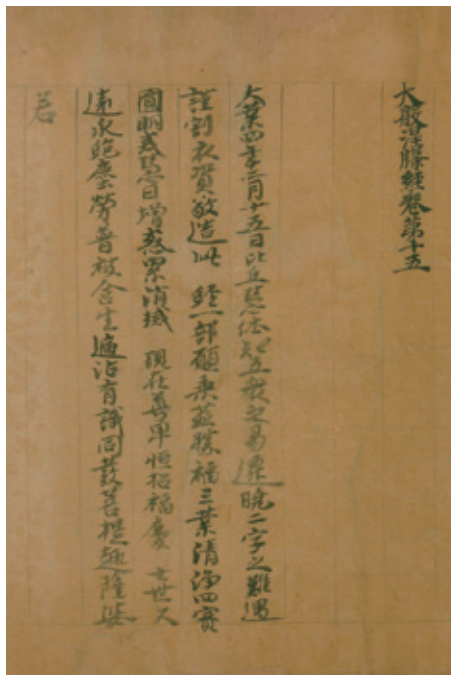 大般涅槃經卷第十五
大業四年二月十五日比丘慧休知五衆之易遷曉二字之難遇
謹割衣資敬造此經一部願乘茲勝福三業清淨四實
圓明戒慧日增惑累消滅現在尊卑恒招福慶七世久
遠永絕塵勞普被含生遍沾有識同發菩提趣薩婆
若